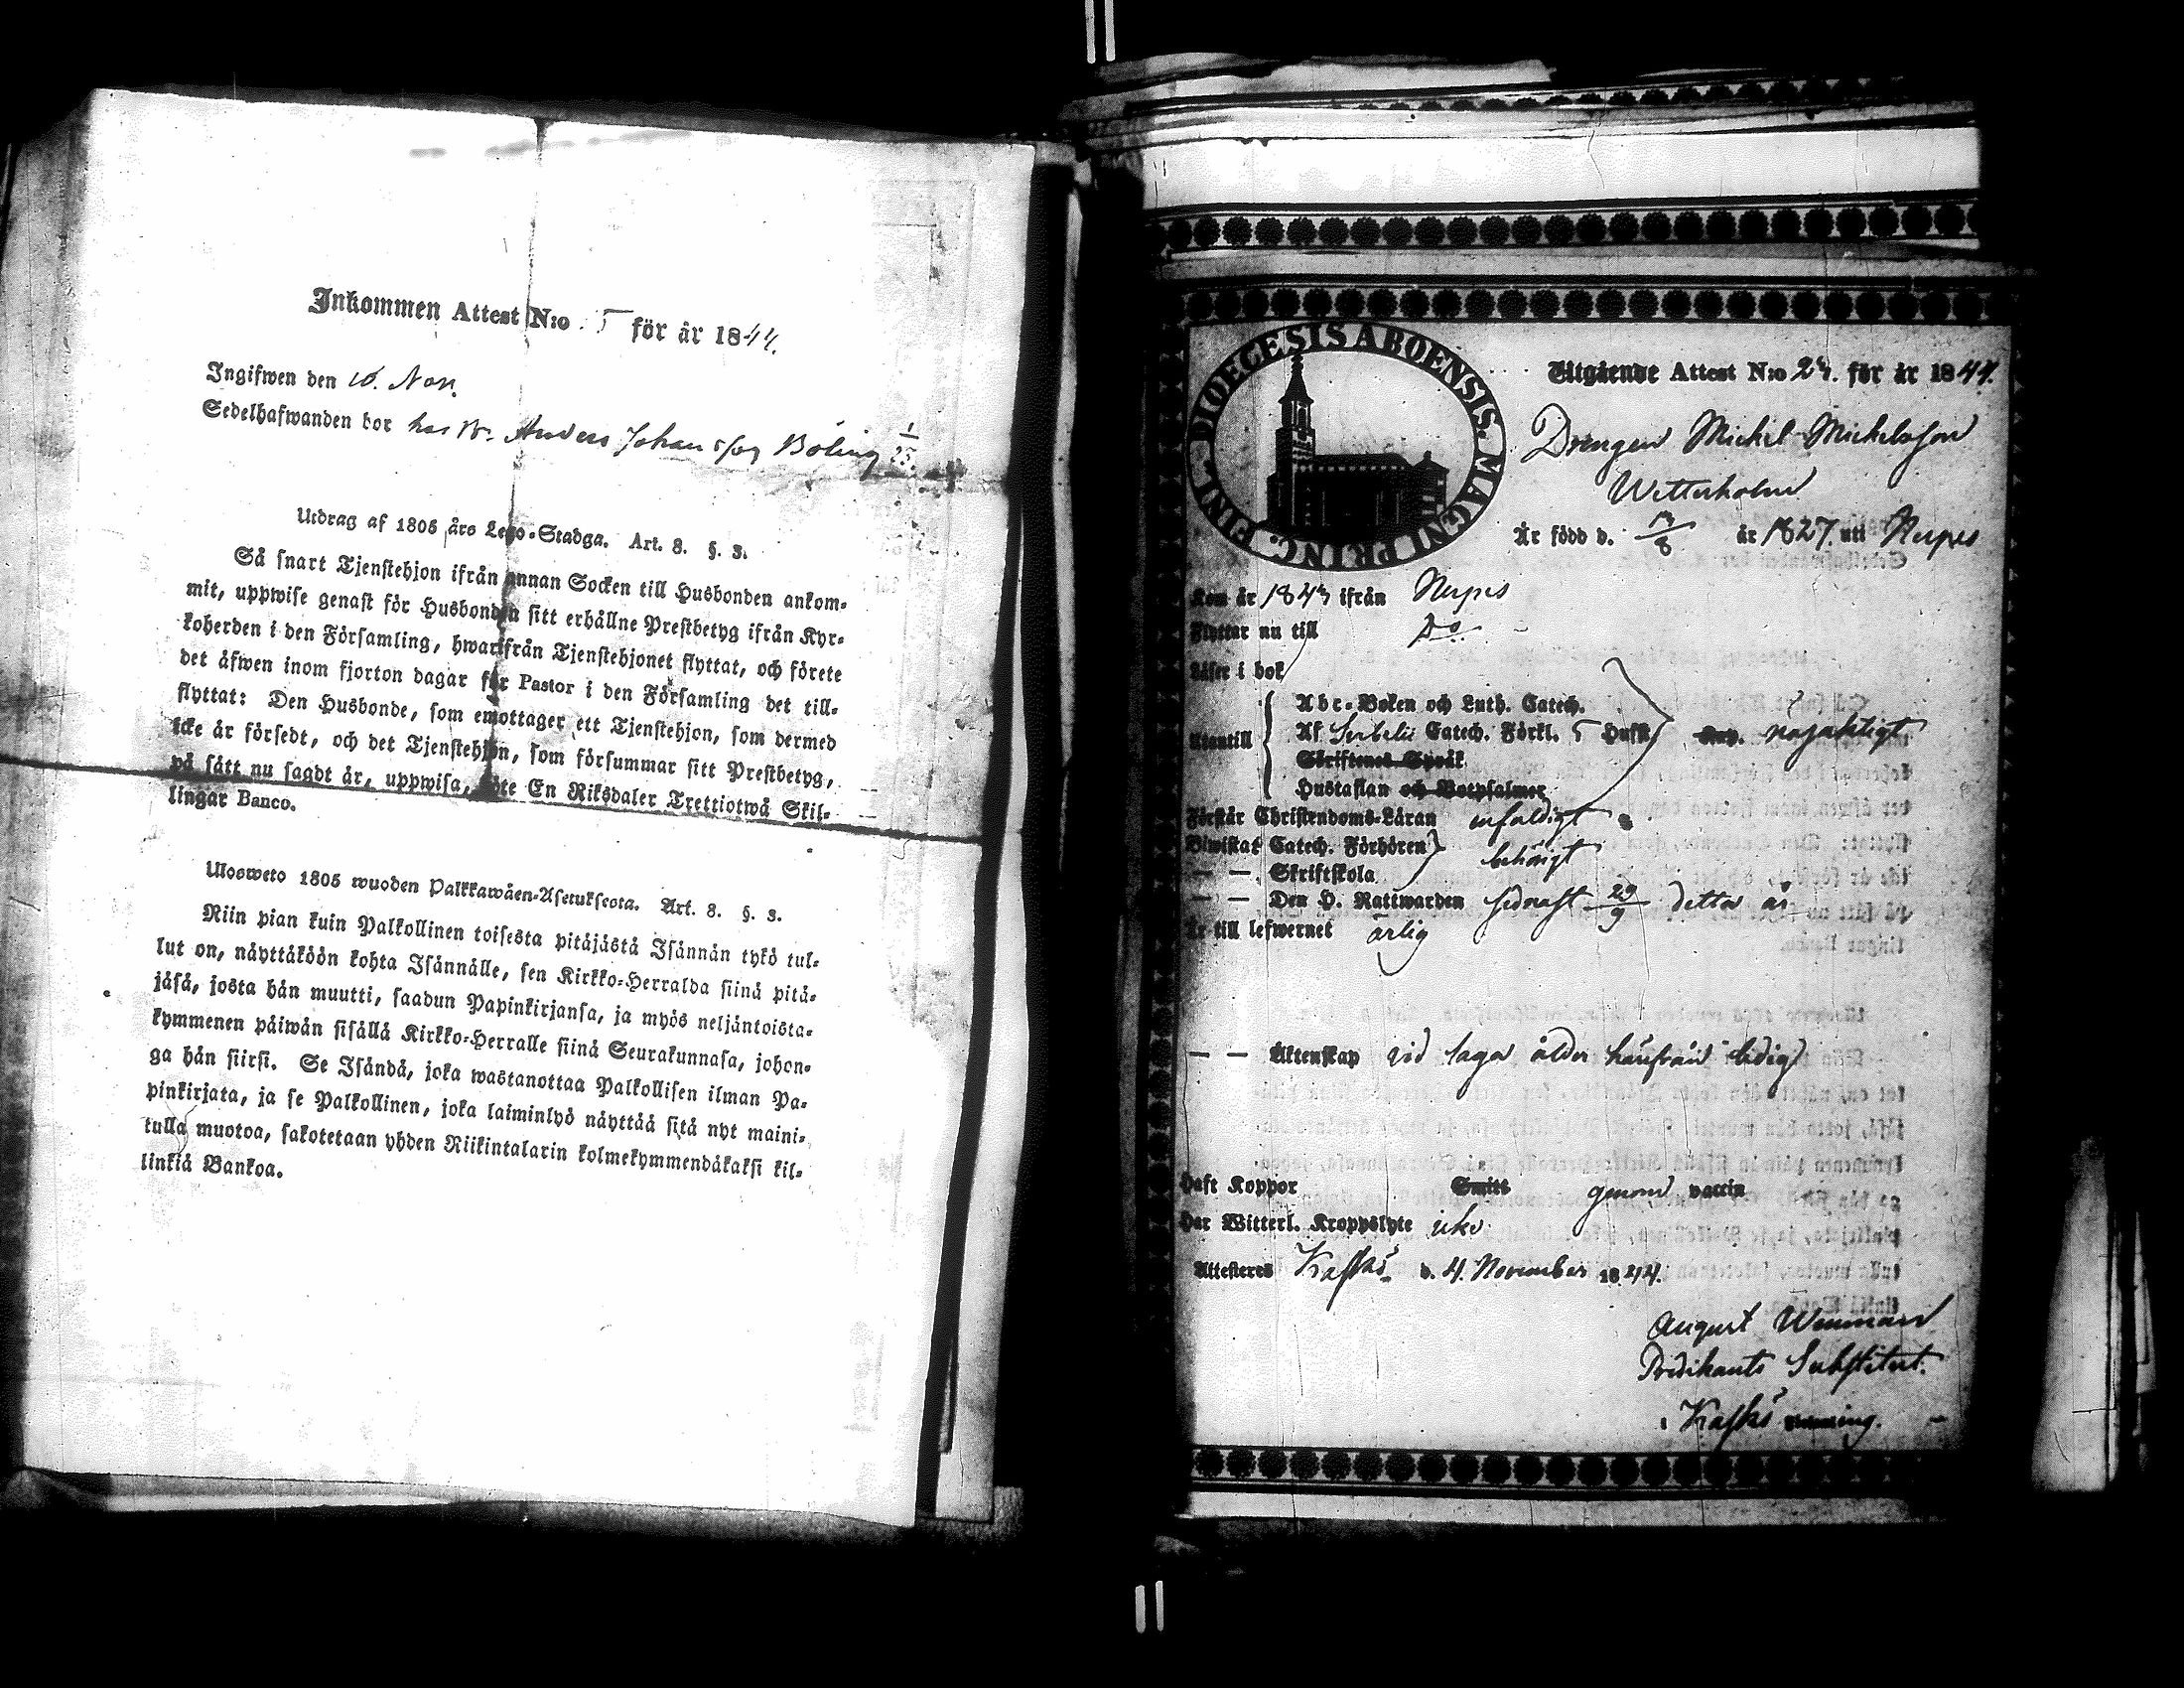 Inkommen Attest N:o 5 för år 1844.
Ingifwen den 10. Nov.
Sedelhafwanden bor hos B. Anders Johansson Böling 1/25.
Utdrag af 1805 års Lego-Stadga. Art. 8. §. 3.
Så snart Tjenstehjon ifrån annan Socken till Husbonden ankom-
mit, uppwise genast för Husbonden sitt erhållne Prestbetyg ifrån Kyr-
koherden i den Församling, hwarifrån Tjenstehjonet flyttat, och förete
det äfwen inom fjorton dagar för Pastor i den Församling det till-
flyttat: Den Husbonde, som emottager ett Tjenstehjon, som dermed
icke är försedt, och det Tjenstehjon, som försummar sitt Prestbetyg,
på sätt nu sagdt är, uppwisa, böte En Riksdaler Trettiotwå Skil-
lingar Banco.
Ulosweto 1805 wuoden Palkkawäen-Asetuksesta. Art. 8. §. 3.
Niin pian kuin Palkollinen toisesta pitäjästä Isännän tykö tul-
lut on, näyttäköön kohta Isännälle, sen Kirkko-Herralda siinä pitä-
jäsä, josta hän muutti, saadun Papinkirjansa, ja myös neljäntoista-
kymmenen päiwän sisällä Kirkko-Herralle siinä Seurakunnasa, johon-
ga hän siirsi. Se Isändä, joka wastanottaa Palkollisen ilman Pa-
pinkirjata, ja se Palkollinen, joka laiminlyö näyttää sitä nyt maini-
tulla muotoa, sakotetaan yhden Riikintalarin kolmekymmendäkaksi kil-
linkiä Bankoa.
DIOECESIS ABOENSIS. MAGNI PRINC. FINL.
Utgående Attest N:o 23. för år 1844.
Drengen Mickel Mickelsson
Wetterholm
Är född d. /8 år 1827 uti Nerpes
Kom år 1843 ifrån Nerpes
Flyttar nu till Do
Läser i bok
Utantill Abc-Boken och Luth. Catech.
Af Serbelii Catech. Förkl. 5 Hufst. nöjaktigt
Skriftenes Språk
Hustaflan och Botpsalmer
Förstår Christendoms-Läran enfaldigt
Biwistat Catech. Förhören behörigt
— — Skriftskola
— — Den H. Nattwarden sednast 29/9 detta år
Är till lefwernet ärlig
— — Äktenskap vid laga ålder härifrån ledig
Haft Koppor Smitt genom vaccin
Har Witterl. Kroppslyte icke
Attesteras Kaskö d. 4. November 1844.
August Wenman
Predikants Substitut.
i Kaskö